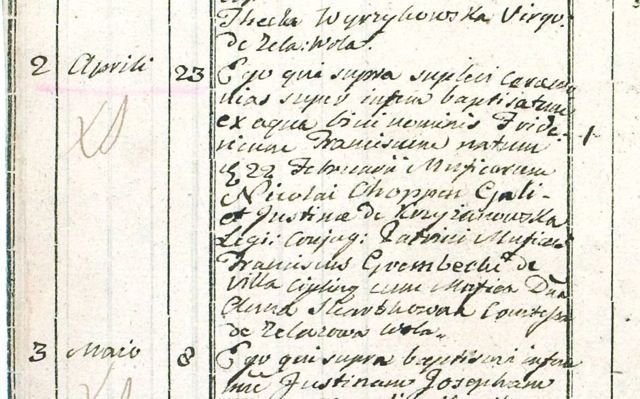 Thecla Wyrzykowska Virgo.
de Zela: Wola.
2 Aprili 23 Ego qui supra suplevi ceremo
nias super infan baptisatum
ex aqua bini nominis Fride-
ricum Franciscum natum
22 Februarii Musicorum
Nicolai Choppen Gali-
et Justinæ de Krzyżanowska
Legi: Conjug: Patrini Musicus
Franciscus Grembecki de
Villa Ciepliny cum Musica Dna
Anna Skarbkowa Comtessa
de Zelazowa Wola.
3 Maio 8 Ego qui supra baptisavi infan
Justinam Josepham